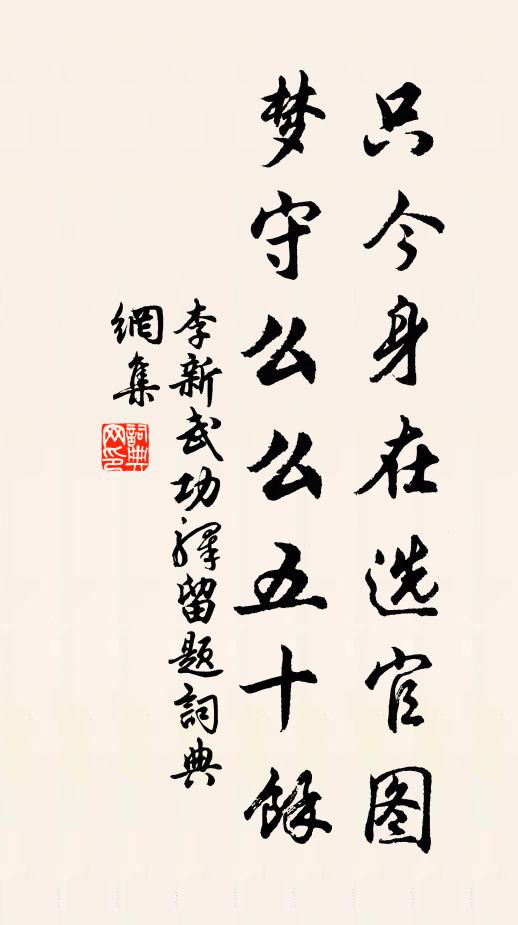 只今身在选官图
梦守么么五十馀
李新武功驿留题詞典
網集
詞典
网印